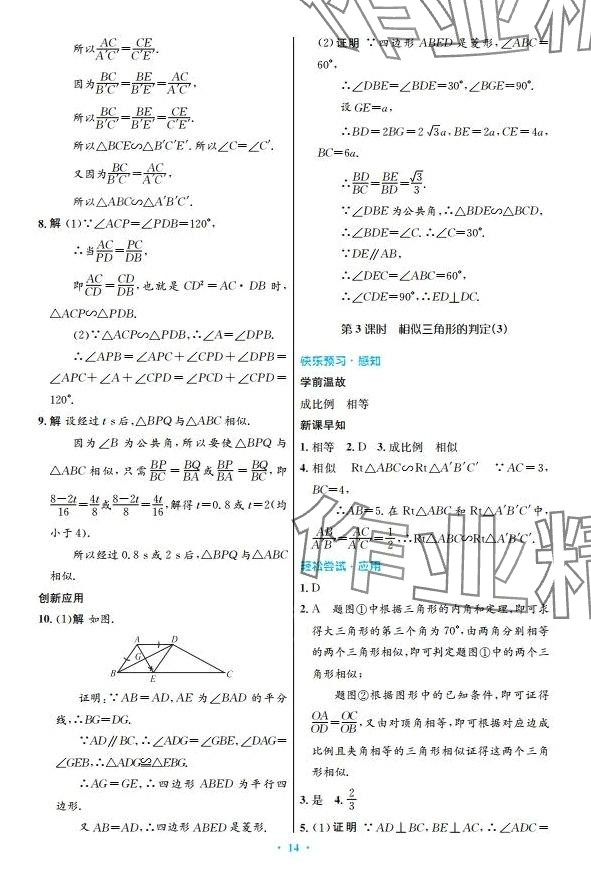 所以AC/A′C′=CE/C′E′.
因为BC/B′C′=BE/B′E′=AC/A′C′,
所以BC/B′C′=BE/B′E′=CE/C′E′.
所以△BCE∽△B′C′E′.所以∠C=∠C′.
又因为BC/B′C′=AC/A′C′,
所以△ABC∽△A′B′C′.
8.解 (1)∵∠ACP=∠PDB=120°,
∴当AC/PD=PC/DB,
即AC/CD=CD/DB,也就是 CD²=AC·DB 时,
△ACP∽△PDB.
(2)∵△ACP∽△PDB,∴∠A=∠DPB.
∴∠APB=∠APC+∠CPD+∠DPB=
∠APC+∠A+∠CPD=∠PCD+∠CPD=
120°.
9.解 设经过 t s后,△BPQ与△ABC相似.
因为∠B为公共角,所以要使△BPQ与
△ABC相似,只需BP/BC=BQ/BA或BP/BA=BQ/BC,即
8-2t/16=4t/8或8-2t/8=4t/16,解得t=0.8或t=2(均
小于4).
所以经过0.8 s或2 s后,△BPQ与△ABC
相似.
创新应用
10.(1)解 如图.
A D
G
B E C
证明:∵AB=AD,AE为∠BAD的平分
线,∴BG=DG.
∵AD∥BC,∴∠ADG=∠GBE,∠DAG=
∠GEB,∴△ADG≌△EBG.
∴AG=GE,∴四边形ABED为平行四
边形.
又AB=AD,∴四边形ABED是菱形.
(2)证明 ∵四边形ABED是菱形,∠ABC=
60°,
∴∠DBE=∠BDE=30°,∠BGE=90°.
设GE=a,
∴BD=2BG=2√3a,BE=2a,CE=4a,
BC=6a.
∴BD/BC=BE/BD=√3/3.
∵∠DBE为公共角,∴△BDE∽△BCD,
∴∠BDE=∠C.∴∠C=30°.
∵DE∥AB,
∴∠DEC=∠ABC=60°,
∴∠CDE=90°,∴ED⊥DC.
第3课时 相似三角形的判定(3)
快乐预习·感知
学前温故
成比例 相等
新课早知
1.相等 2.D 3.成比例 相似
4.相似 Rt△ABC∽Rt△A′B′C′ ∵AC=3,
BC=4,
∴AB=5.在Rt△ABC和Rt△A′B′C′中,
AB/A′B′=AC/A′C′=1/2,∴Rt△ABC∽Rt△A′B′C′.
轻松尝试·应用
1.D
2.A 题图①中根据三角形的内角和定理,即可求
得大三角形的第三个角为70°,由两角分别相等
的两个三角形相似,即可判定题图①中的两个三
角形相似;
题图②根据图形中的已知条件,即可证得
OA/OD=OC/OB,又由对顶角相等,即可根据对应边成
比例且夹角相等的三角形相似证得这两个三角
形相似.
3.是 4.2/3
5.(1)证明 ∵AD⊥BC,BE⊥AC,∴∠ADC=
· 14 ·
作业精
作业精